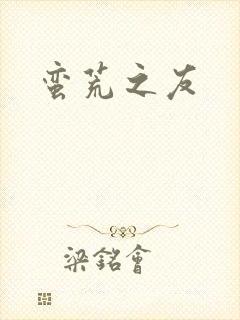 蛮荒之友
梁銘會